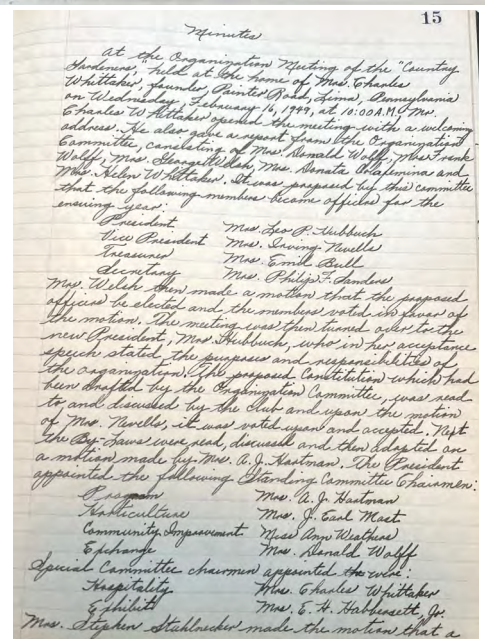 15
Minutes
At the Organization Meeting of the "Country
Gardeners," held at the home of Mrs. Charles
Whittaker, founder, Painter Road, Lima, Pennsylvania
on Wednesday, February 16, 1949, at 10:00 A.M., Mr.
Charles Whittaker opened the meeting with a welcoming
address. He also gave a report from the Organization
Committee, consisting of Mrs. Donald Wolff, Mrs. Frank
Wolff, Mrs. George Welsh, Mrs. Donata Colafemina and
Mrs. Helen Whittaker. It was proposed by this committee
that the following members become officers for the
ensuing year:
President Mrs. Leo P. Hubbuch
Vice President Mrs. Irving Nevells
Treasurer Mrs. Emil Bull
Secretary Mrs. Philip F. Sanders
Mrs. Welsh then made a motion that the proposed
officers be elected and the members voted in favor of
the motion. The meeting was then turned over to the
new President, Mrs. Hubbuch, who in her acceptance
speech stated, the purposes and responsibilities of
the organization. The proposed Constitution which had
been drafted by the Organization Committee, was read
to, and discussed by the Club and upon the motion
of Mrs. Nevells, it was voted upon and accepted. Next
the By-Laws were read, discussed and then adopted on
a motion made by Mrs. A. J. Hartman. The President
appointed the following Standing Committee Chairmen:
Program Mrs. A. J. Hartman
Horticulture Mrs. J. Earl Mast
Community Improvement Miss Ann Weathers
Exchange Mrs. Donald Wolff
Special Committee chairmen appointed the were:
Hospitality Mrs. Charles Whittaker
Exhibits Mrs. E. H. Habbersett, Jr.
Mrs. Stephen Stahlnecker made the motion that a